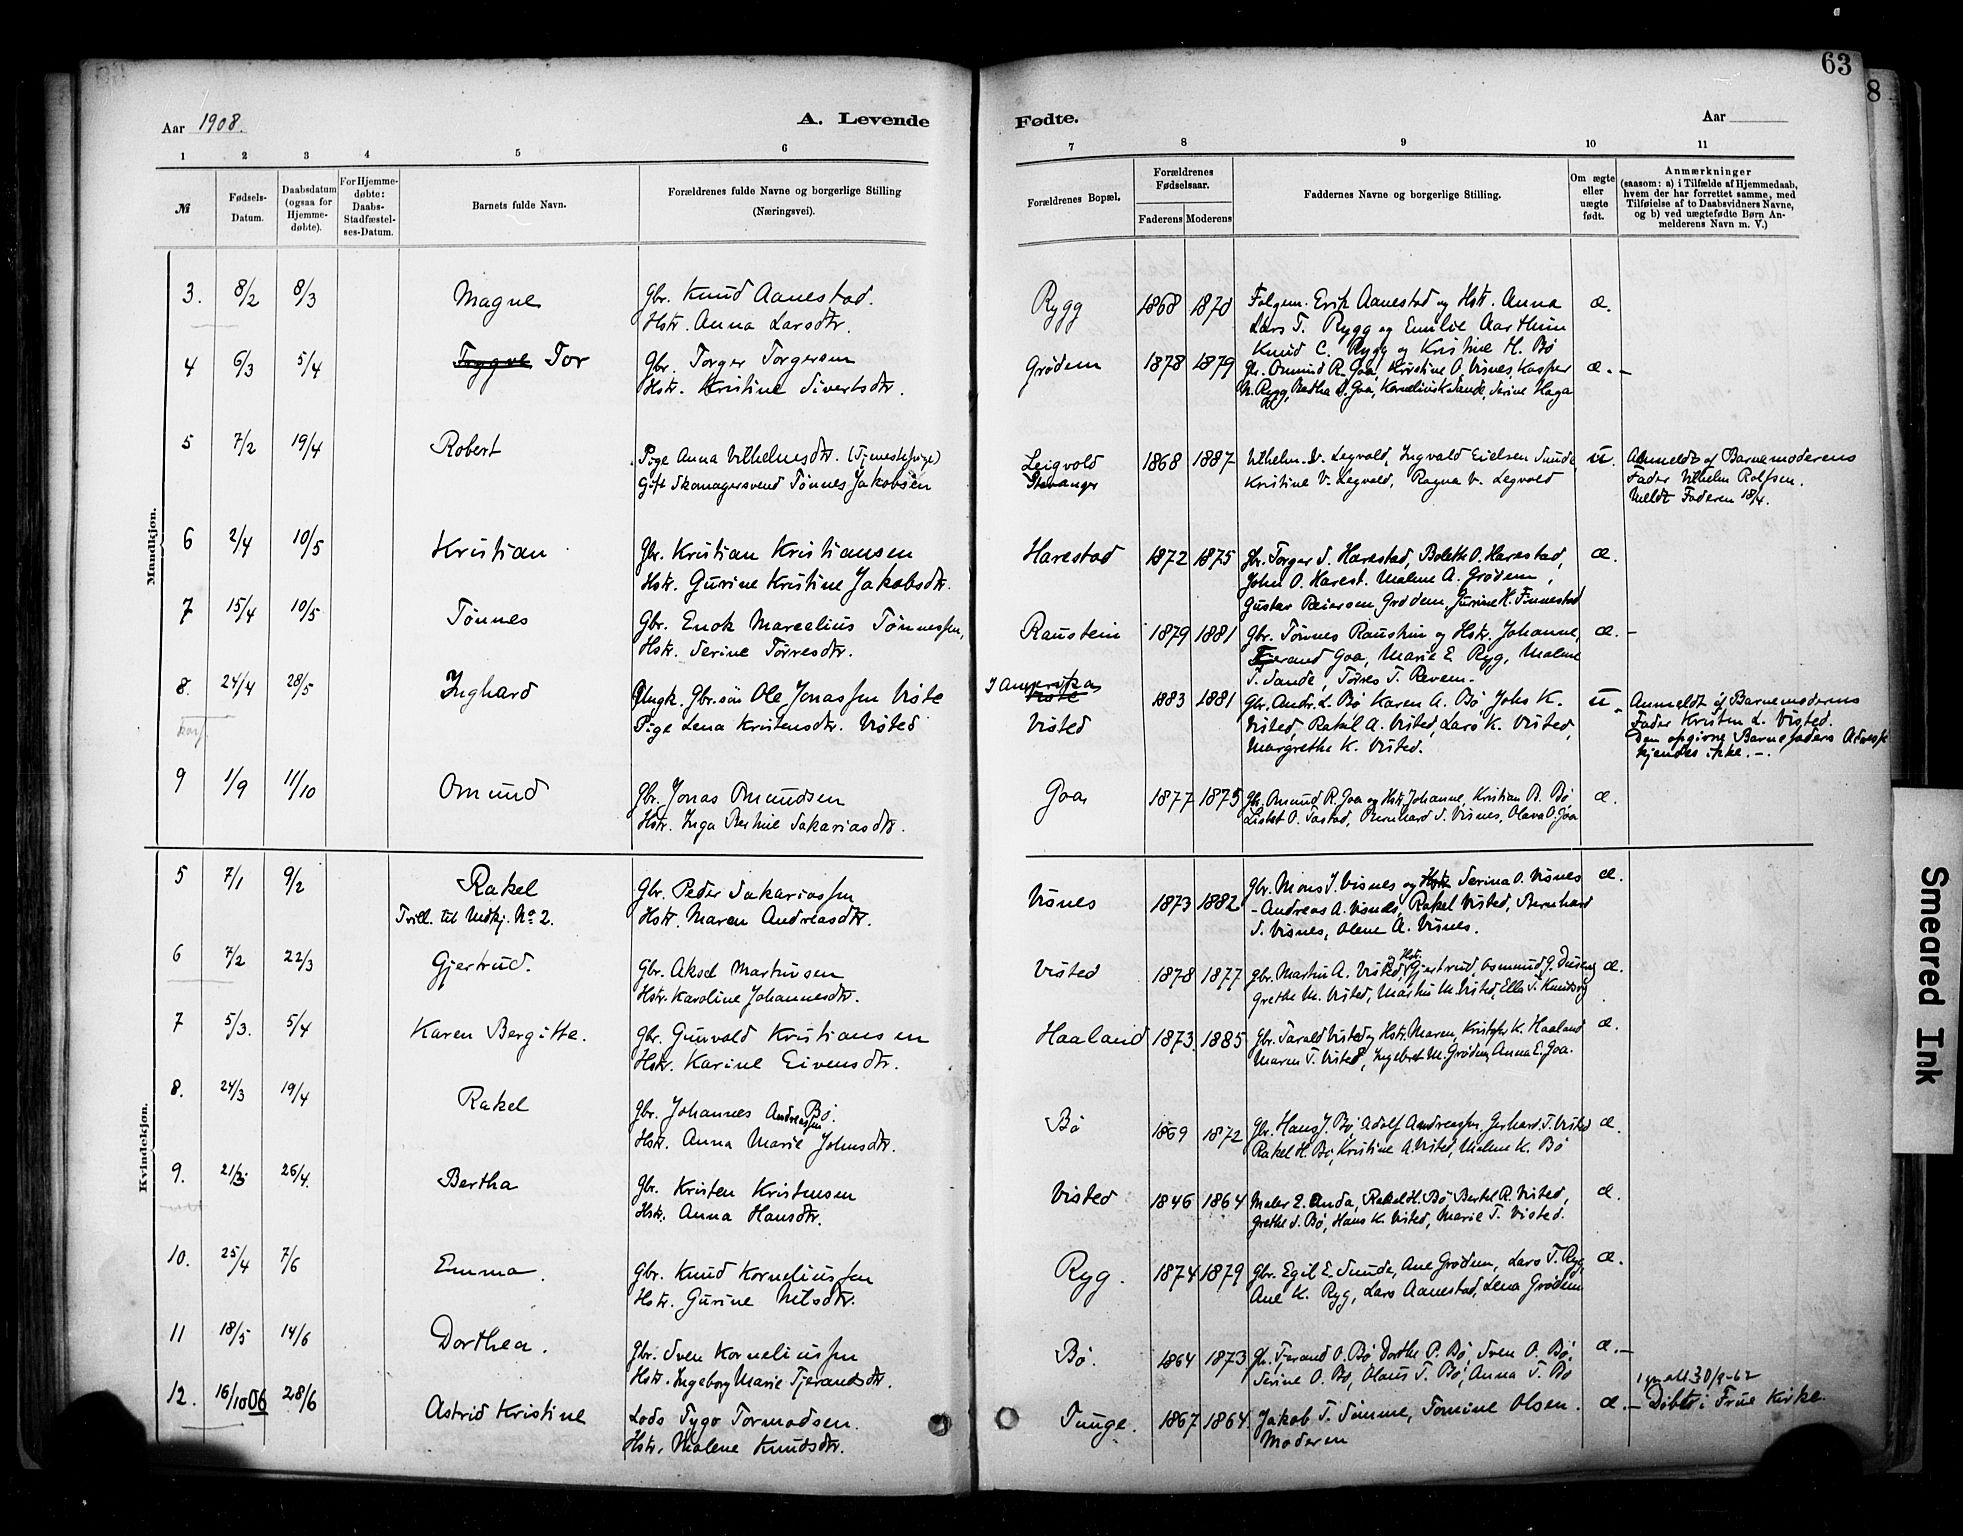 63
8
Aar 1908.
A. Levende
Fødte.
Aar
1 2 3 4 5 6 7 8 9 10 11
№
Fødsels-Datum.
Daabsdatum (ogsaa for Hjemmedøbte).
For Hjemmedøbte: Daabs-Stadfæstelses-Datum.
Barnets fulde Navn.
Forældrenes fulde Navne og borgerlige Stilling (Næringsvei).
Forældrenes Bopæl.
Forældrenes Fødselsaar.
Faderens Moderens
Faddernes Navne og borgerlige Stilling.
Om ægte eller uægte født.
Anmærkninger
(saasom: a) i Tilfælde af Hjemmedaab, hvem der har forrettet samme, med Tilføielse af to Daabsvidners Navne, og b) ved uægtefødte Børn Anmelderens Navn m. V.)
Mandkjøn.
3. 8/2 8/3 Magne Gbr. Knud Aanestad. Rygg 1868 1870 Folgem. Erik Aanestad og Hstr. Anna æ.
Hstr. Anna Larsdtr. Lars T. Rygg og Emilie Aarthun
Knud C. Rygg og Kristine H. Bø
4 6/3 5/4 Trygve Tor Gbr. Torger Torgersen Grødem 1878 1879 Gbr. Omund R. Goa, Kristine O. Visnes, Kasper æ. -
Hstr. Kristine Sivertsdtr. N. Rygg, Bertha O. Goa, Kornelius K. Sande, Serine Haga
5 7/2 19/4 Robert Pige Anna Vilhelmsdtr. (Tjenestepige) Leigvold 1868 1887 Vilhelm V. Legvold, Ingvald Eielsen Sunde u. Anmeldt af Barnemoderens
Gift Skomagersvend Tønnes Jakobsen Stavanger Kristine V. Legvold, Ragna V. Legvold Fader Vilhelm Rolfsen.
Meldt Faderen 18/4.
6 2/4 10/5 Kristian Gbr. Kristian Kristiansen Harestad 1872 1875 Gbr. Torger S. Harestad, Bolette O. Harestad, æ.
Hstr. Gurine Kristine Jakobsdtr. John O. Harest. Malene A. Grødem,
Gustav Reiersen Grødem, Gurine H. Finnestad
7 15/4 10/5 Tønnes Gbr. Enok Marcelius Tønnessen, Raustein 1879 1881 Gbr. Tønnes Raustein og Hstr. Johanne, æ. -
Hstr. Serine Torresdtr. Tjerand Goa, Marie E. Ryg, Malene
T. Sande, Torres T. Revem.
8. 24/4 28/5 Inghard Ungk. Gbr.søn Ole Jonassen Viste I Amerika 1883 1881 Gbr. Andr. L. Bø Karen A. Bø, Johs K. u. Anmeldt af Barnemoderens
Pige Lena Kristensdtr. Visted Viste Visted Visted, Rakel A. Visted, Lars K. Visted, Fader Kristen L. Visted.
Margrethe K. Visted. Den opgivne Barnefaders Adresse
kjendes ikke. -
9 1/9 11/10 Omund Gbr. Jonas Omundsen Goa 1877 1875 Gbr. Omund R. Goa og Hstr. Johanne, Kristian B. Bø æ.
Hstr. Inga Bertine Sakariasdtr. Lisbet O. Tastad, Bernhard S. Visnes, Olava O. Goa
Kvindekjøn.
5 7/1 9/2 Rakel Gbr. Peder Sakariassen Visnes 1873 1882 Gbr. Mons J. Visnes og Hstr. Serina O. Visnes æ.
Tvill. til Mdkj. No 2. Hstr. Maren Andreasdtr. - Andreas A. Visnes, Rakel Visted, Bernhard
S. Visnes, Olene A. Visnes.
6 7/2 22/3 Gjertrud. Gbr. Aksel Martinsen Visted 1878 1877 Gbr. Martin A. Visted og Hstr. Gjertrud, Osmund J. Duseng æ.
Hstr. Karoline Johannesdtr. Grethe M. Visted, Martin M. Visted, Ella T.
7 5/3. 5/4 Karen Bergitte. Gbr. Gunvald Kristiansen Haaland 1873 1885 Gbr. Tarald Visted og Hstr. Maren, Kristofer K. Haaland æ.
Hstr. Karine Eivensdtr. Maren T. Visted, Ingebret M. Grødem, Anna E. Goa.
8. 24/3 19/4 Rakel Gbr. Johannes Andreassen Bø. Bø 1869 1872 Gbr. Hans J. Bø Adolf Andreassen, Gerhard T. Visted æ.
Hstr. Anna Marie Johnsdtr. Rakel H. Bø, Kristine A. Visted, Malene K. Bø
9. 21/3 26/4. Bertha Gbr. Kristen Kristensen Visted 1846 1864 Maler E. Anda, Rakel H. Bø Bertel R. Visted, æ.
Hstr. Anna Hansdtr. Grethe S. Bø, Hans K. Visted, Marie T. Visted.
10. 25/4 7/6 Emma. Gbr. Knud Korneliussen Ryg. 1874 1879 Gbr. Egil E. Sunde, Ane Grødem, Lars T. Ryg æ.
Hstr. Gurine Nilsdtr. Ane K. Ryg, Lars Aanestad, Lena Grødem
11 18/5 14/6 Dorthea. Gbr. Sven Korneliussen Bø. 1864 1873 Gbr. Tjerand O. Bø Dorthe P. Bø, Sven O. Bø, æ. -
Hstr. Ingeborg Marie Tjerandsdtr. Serine O. Bø, Olaus T. Bø, Anna T. Bø
12. 16/10 06 28/6 Astrid Kristine Lods Tygo Tormodsen. Tunge. 1867 1864 Jakob T. Sømme, Tomine Olsen. æ. - Døbt i Frue Kirke.
Hstr. Malene Knudsdtr. Moderen
30/9-62
Smeared Ink